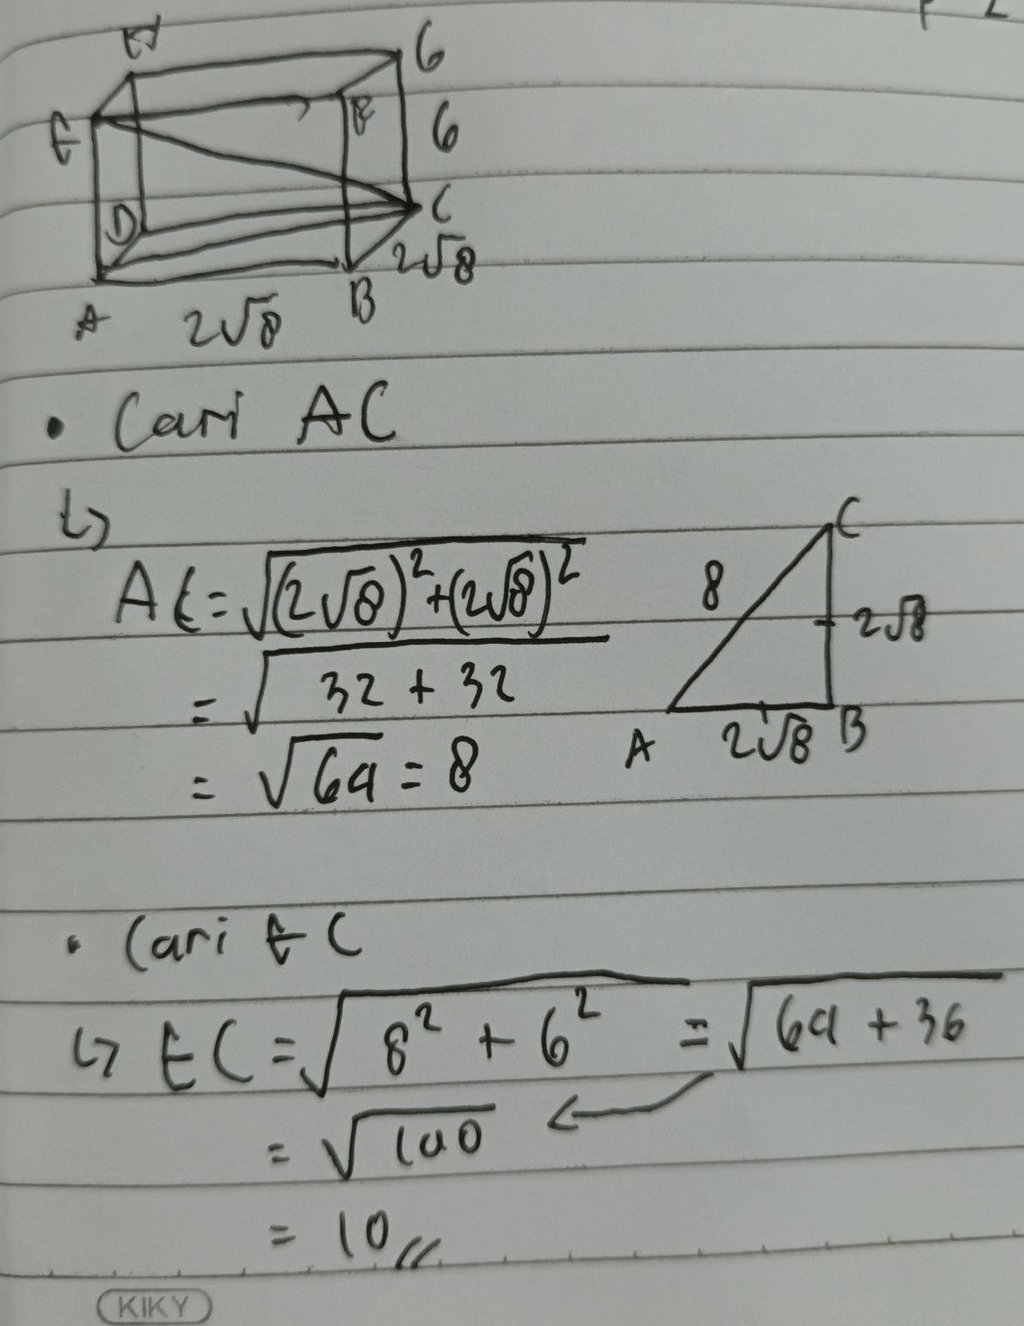 H
G
E
F
6
D
C
2√8
A
2√8
B
• Cari AC
↳
AC = √(2√8)² + (2√8)²
= √32 + 32
= √64 = 8
C
8
2√8
A
2√8
B
• Cari EC
↳ EC = √8² + 6² = √64 + 36
= √100
= 10 //
KIKY